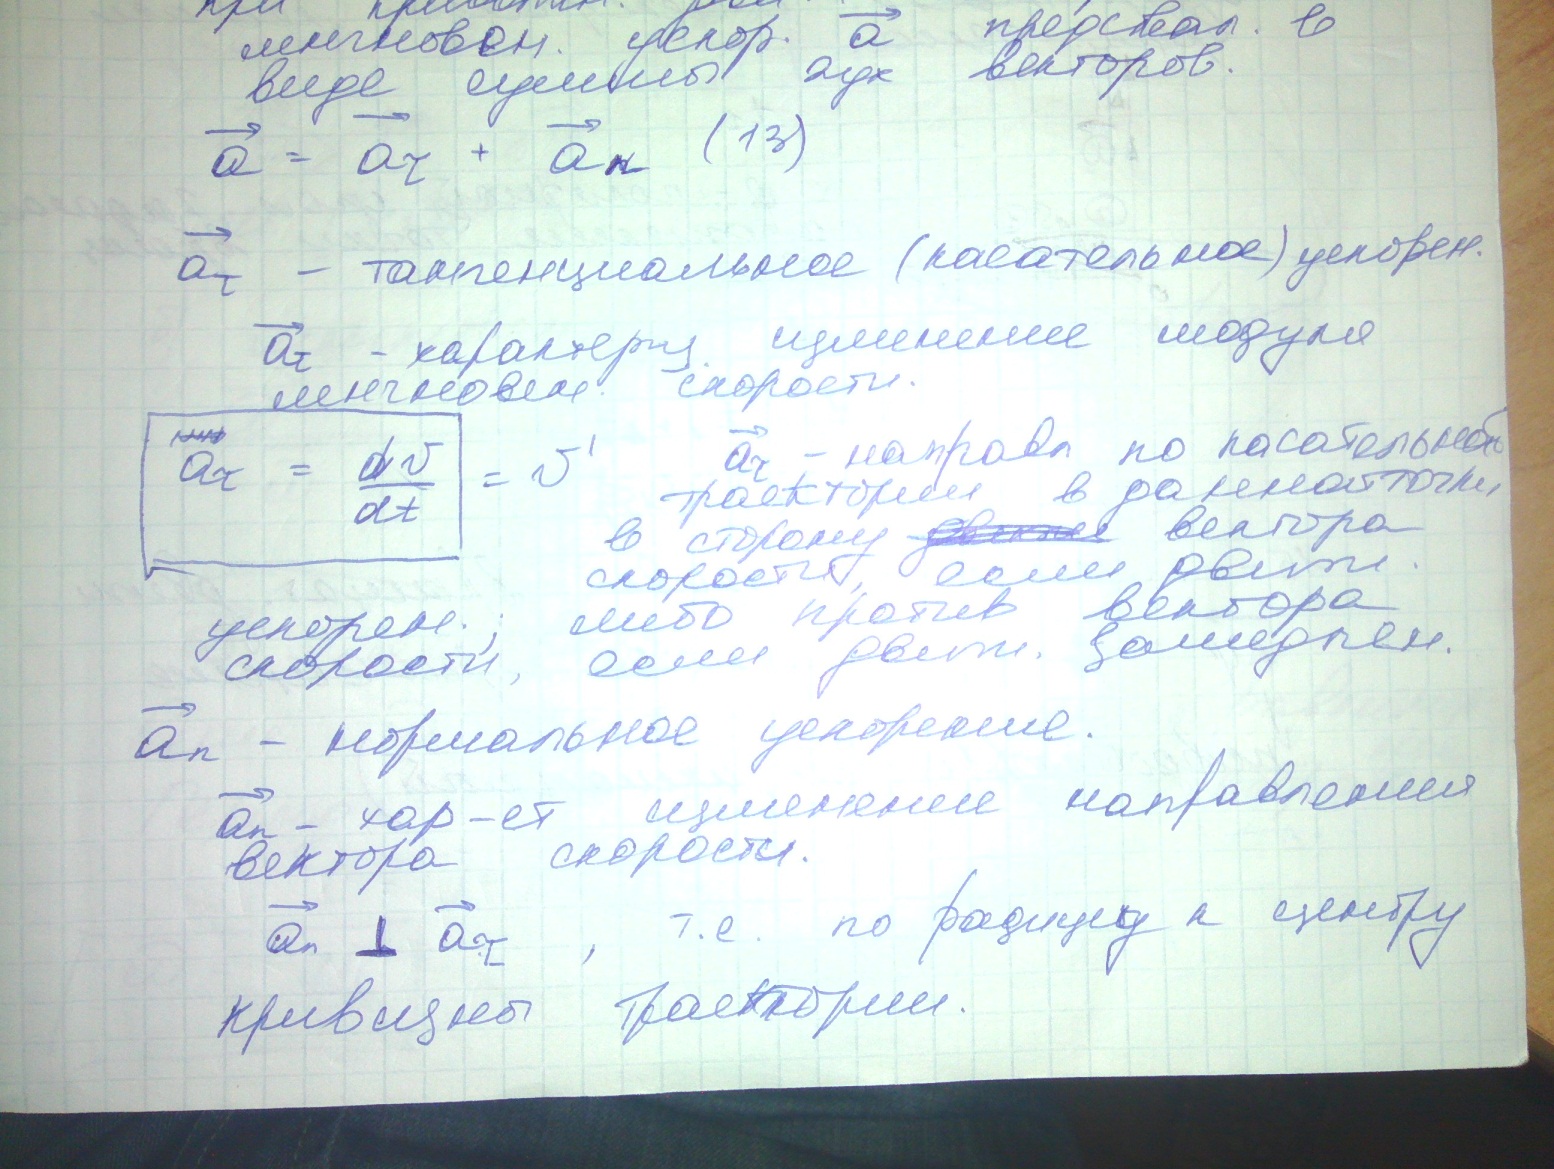 при
мгновен. ускор. a⃗ представл. в
виде суммы двух векторов.
a⃗ = a⃗τ + a⃗n (13)
a⃗τ – тангенциальное (касательное) ускорен.
a⃗τ – характериз. изменение модуля
мгновен. скорости.
aτ = dv/dt = v'
a⃗τ – направл по касательной
траектории в данной точки
в сторону вектора
скорости, если движ.
ускорен.; либо против вектора
скорости, если движ. замедлен.
a⃗n – нормальное ускорение.
a⃗n – хар–ет изменение направления
вектора скорости.
a⃗n ⊥ a⃗τ, т.е. по радиусу к центру
кривизны траектории.